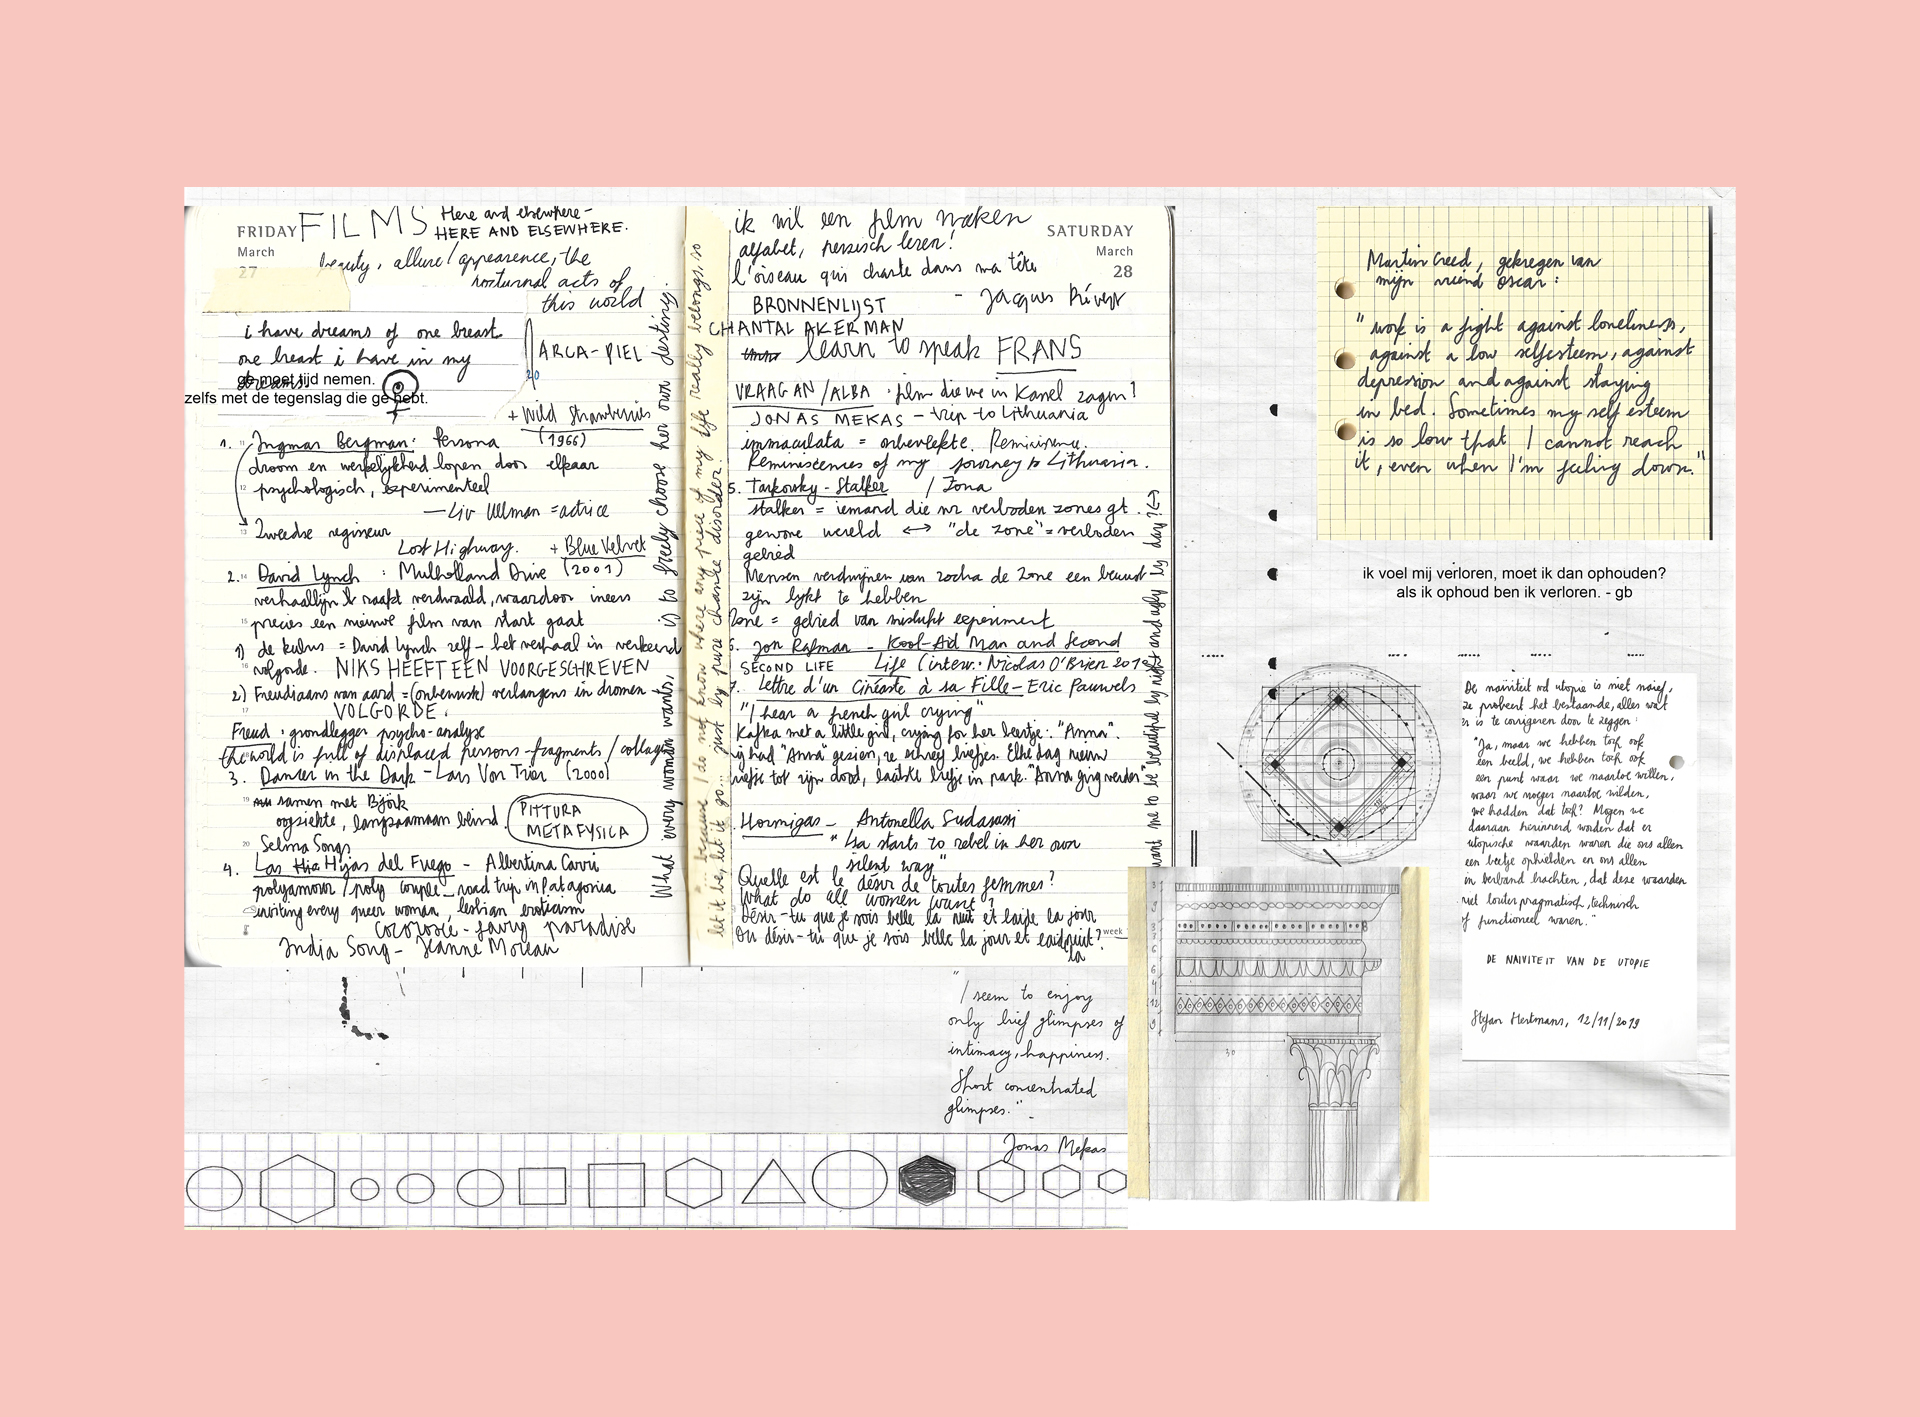 FRIDAY
March
27
FILMS
Here and elsewhere -
HERE AND ELSEWHERE.
beauty, allure / appearence, the
nocturnal acts of
this world
i have dreams of one breast
one breast i have in my
dreams.
ge moet tijd nemen.
zelfs met de tegenslag die ge hebt.
ARCA-PIEL
20
+ Wild Strawberries
1. Ingmar Bergman: Persona (1966)
droom en werkelijkheid lopen door elkaar
psychologisch, experimenteel
— Liv Ullman = actrice
Zweedse regisseur
Lost Highway. + Blue Velvet
2. David Lynch : Mulholland Drive (2001)
verhaallijn raakt verdwaald, waardoor ineens
precies een nieuwe film van start gaat
1) de kubus = David Lynch zelf - het verhaal in verkeerde
volgorde. NIKS HEEFT EEN VOORGESCHREVEN
2) Freudiaans van aard = (onbewust) verlangens in dromen
VOLGORDE.
Freud : grondlegger psycho-analyse
the world is full of displaced persons - fragments / collages
3. Dancer in the Dark - Lars Von Trier (2000)
samen met Björk
oogziekte, langzaamaan blind.
PITTURA
METAFYSICA
Selma Songs
4. Las Hijas del Fuego - Albertina Carri
polyamour / poly couple road trip in Patagonia
inviting every queer woman, lesbian eroticism
cocorosie - fairy paradise
India Song - Jeanne Moreau
What every woman wants, is to freely choose her own destiny.
"because I do not know where any piece of my life really belongs. so
let it be, let it go... just by pure chance disorder.
SATURDAY
March
28
ik wil een film maken
alfabet, perzisch leren!
l'oiseau qui chante dans ma tête
- Jacques Prévert
BRONNENLIJST
CHANTAL AKERMAN
learn to speak FRANS
VRAAG AN / ALBA : film die we in Kanel zagen?
JONAS MEKAS - trip to Lithuania
immaculata = onbevlekte. Reminiscency.
Reminiscenies of my journey to Lithuania.
5. Tarkovsky - Stalker / Zona
stalker = iemand die nr verboden zones gt.
gewone wereld ↔ "de zone" = verboden
gebied
Mensen verdwijnen van zodra de Zone een bewust
zijn lijkt te hebben
Zone = gebied van mislukt experiment
6. Jon Rafman - Kool-Aid Man and Second
SECOND LIFE Life (interw. Nicolas O'Brien
7. Lettre d'un Cinéaste à sa Fille - Eric Pauwels
"I hear a french girl crying"
Kafka met a little girl, crying for her beertje: "Anna".
hij had "Anna" gezien, ze schreef briefjes. Elke dag nieuw
briefje tot zijn dood, laatste briefje in park. "Anna ging verder"
Hormigas - Antonella Sudasassi
"Isa starts to rebel in her own
silent way"
Quelle est le désir de toutes femmes?
What do all women want?
Désir-tu que je sois belle la nuit et laide la jour
Ou désir-tu que je sois belle la jour et laid la nuit?
week
want me to be beautiful by night and ugly by day? ↔
Martin Creed, gekregen van
mijn vriend Oscar :
"work is a fight against loneliness,
against a low selfesteem, against
depression and against staying
in bed. Sometimes my self esteem
is so low that I cannot reach
it, even when I'm feeling down."
ik voel mij verloren, moet ik dan ophouden?
als ik ophoud ben ik verloren. - gb
De naïviteit vd utopie is niet naïef,
ze probeert het bestaande, alles wat
er is te corrigeren door te zeggen :
"Ja, maar we hebben toch ook
een beeld, we hebben toch ook
een punt waar we naartoe willen,
waar we vroeger naartoe wilden,
we hadden dat toch? Mogen we
daaraan herinnerd worden dat er
utopische waarden waren die ons allen
een beetje ophielden en ons allen
in verband brachten, dat deze waarden
niet louter pragmatisch, technisch
of functioneel waren."
DE NAIVITEIT VAN DE UTOPIE
Stefan Hertmans, 12/11/2019
30
"I seem to enjoy
only brief glimpses of
intimacy, happiness.
Short concentrated
glimpses."
Jonas Mekas